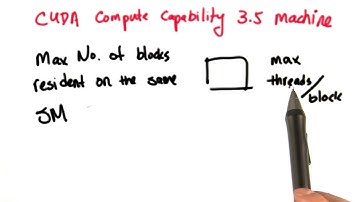 CUDA Compute Capability 3.5 Machine
Max No. of blocks
resident on the same
SM
max
threads/
block